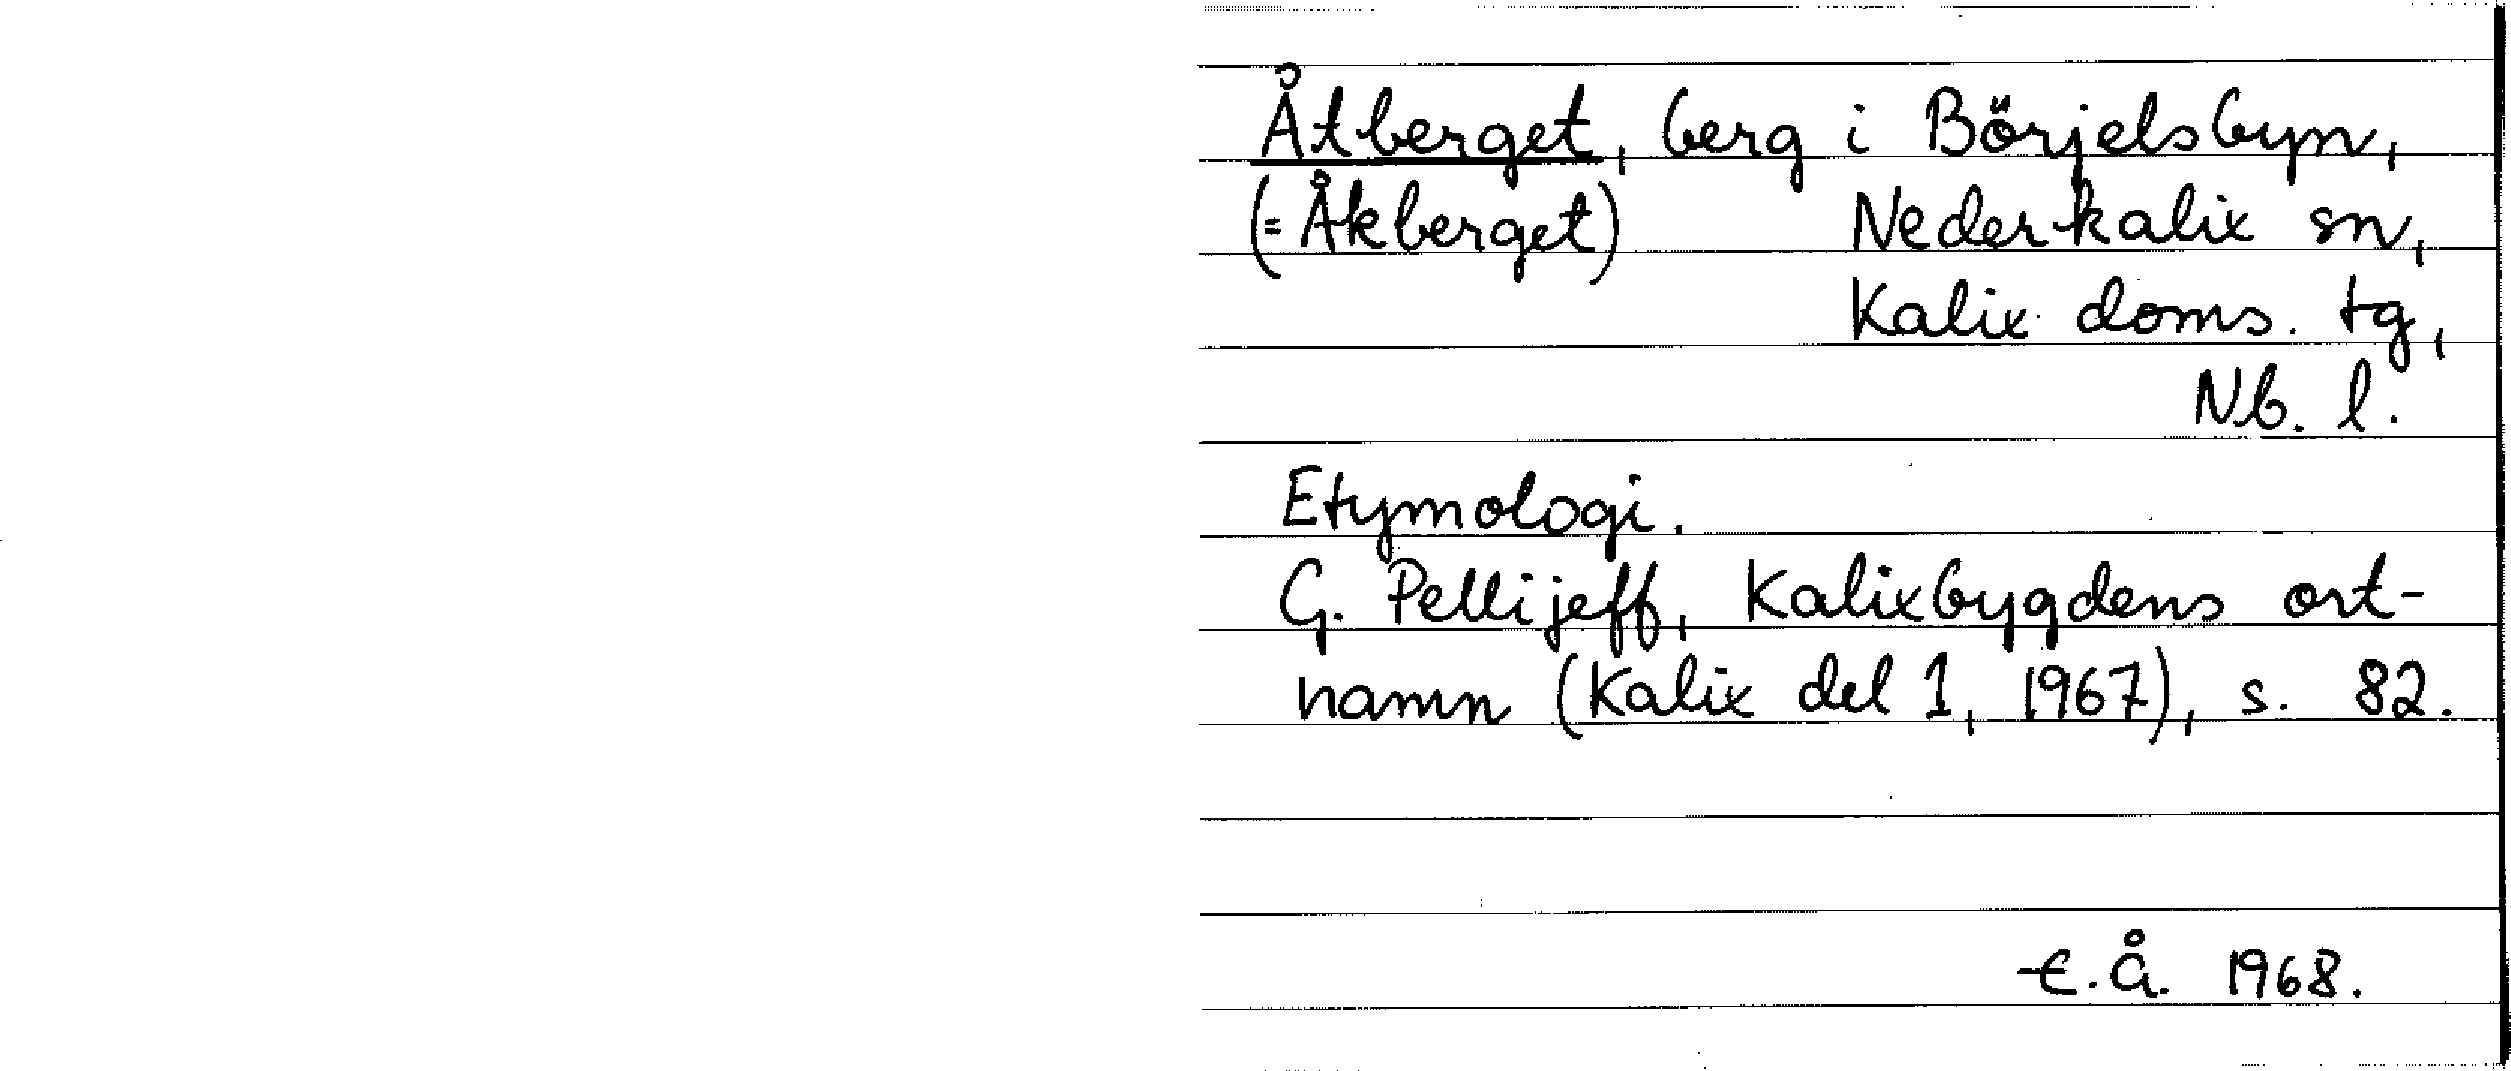 Åtberget, berg i Börjelsbyn,
(= Åkberget) Nederkalix sn,
Kalix doms. tg,
Nb. l.
Etymologi.
G. Pellijeff, Kalixbygdens ort-
namn (Kalix del 1, 1967), s. 82.
E.Å. 1968.